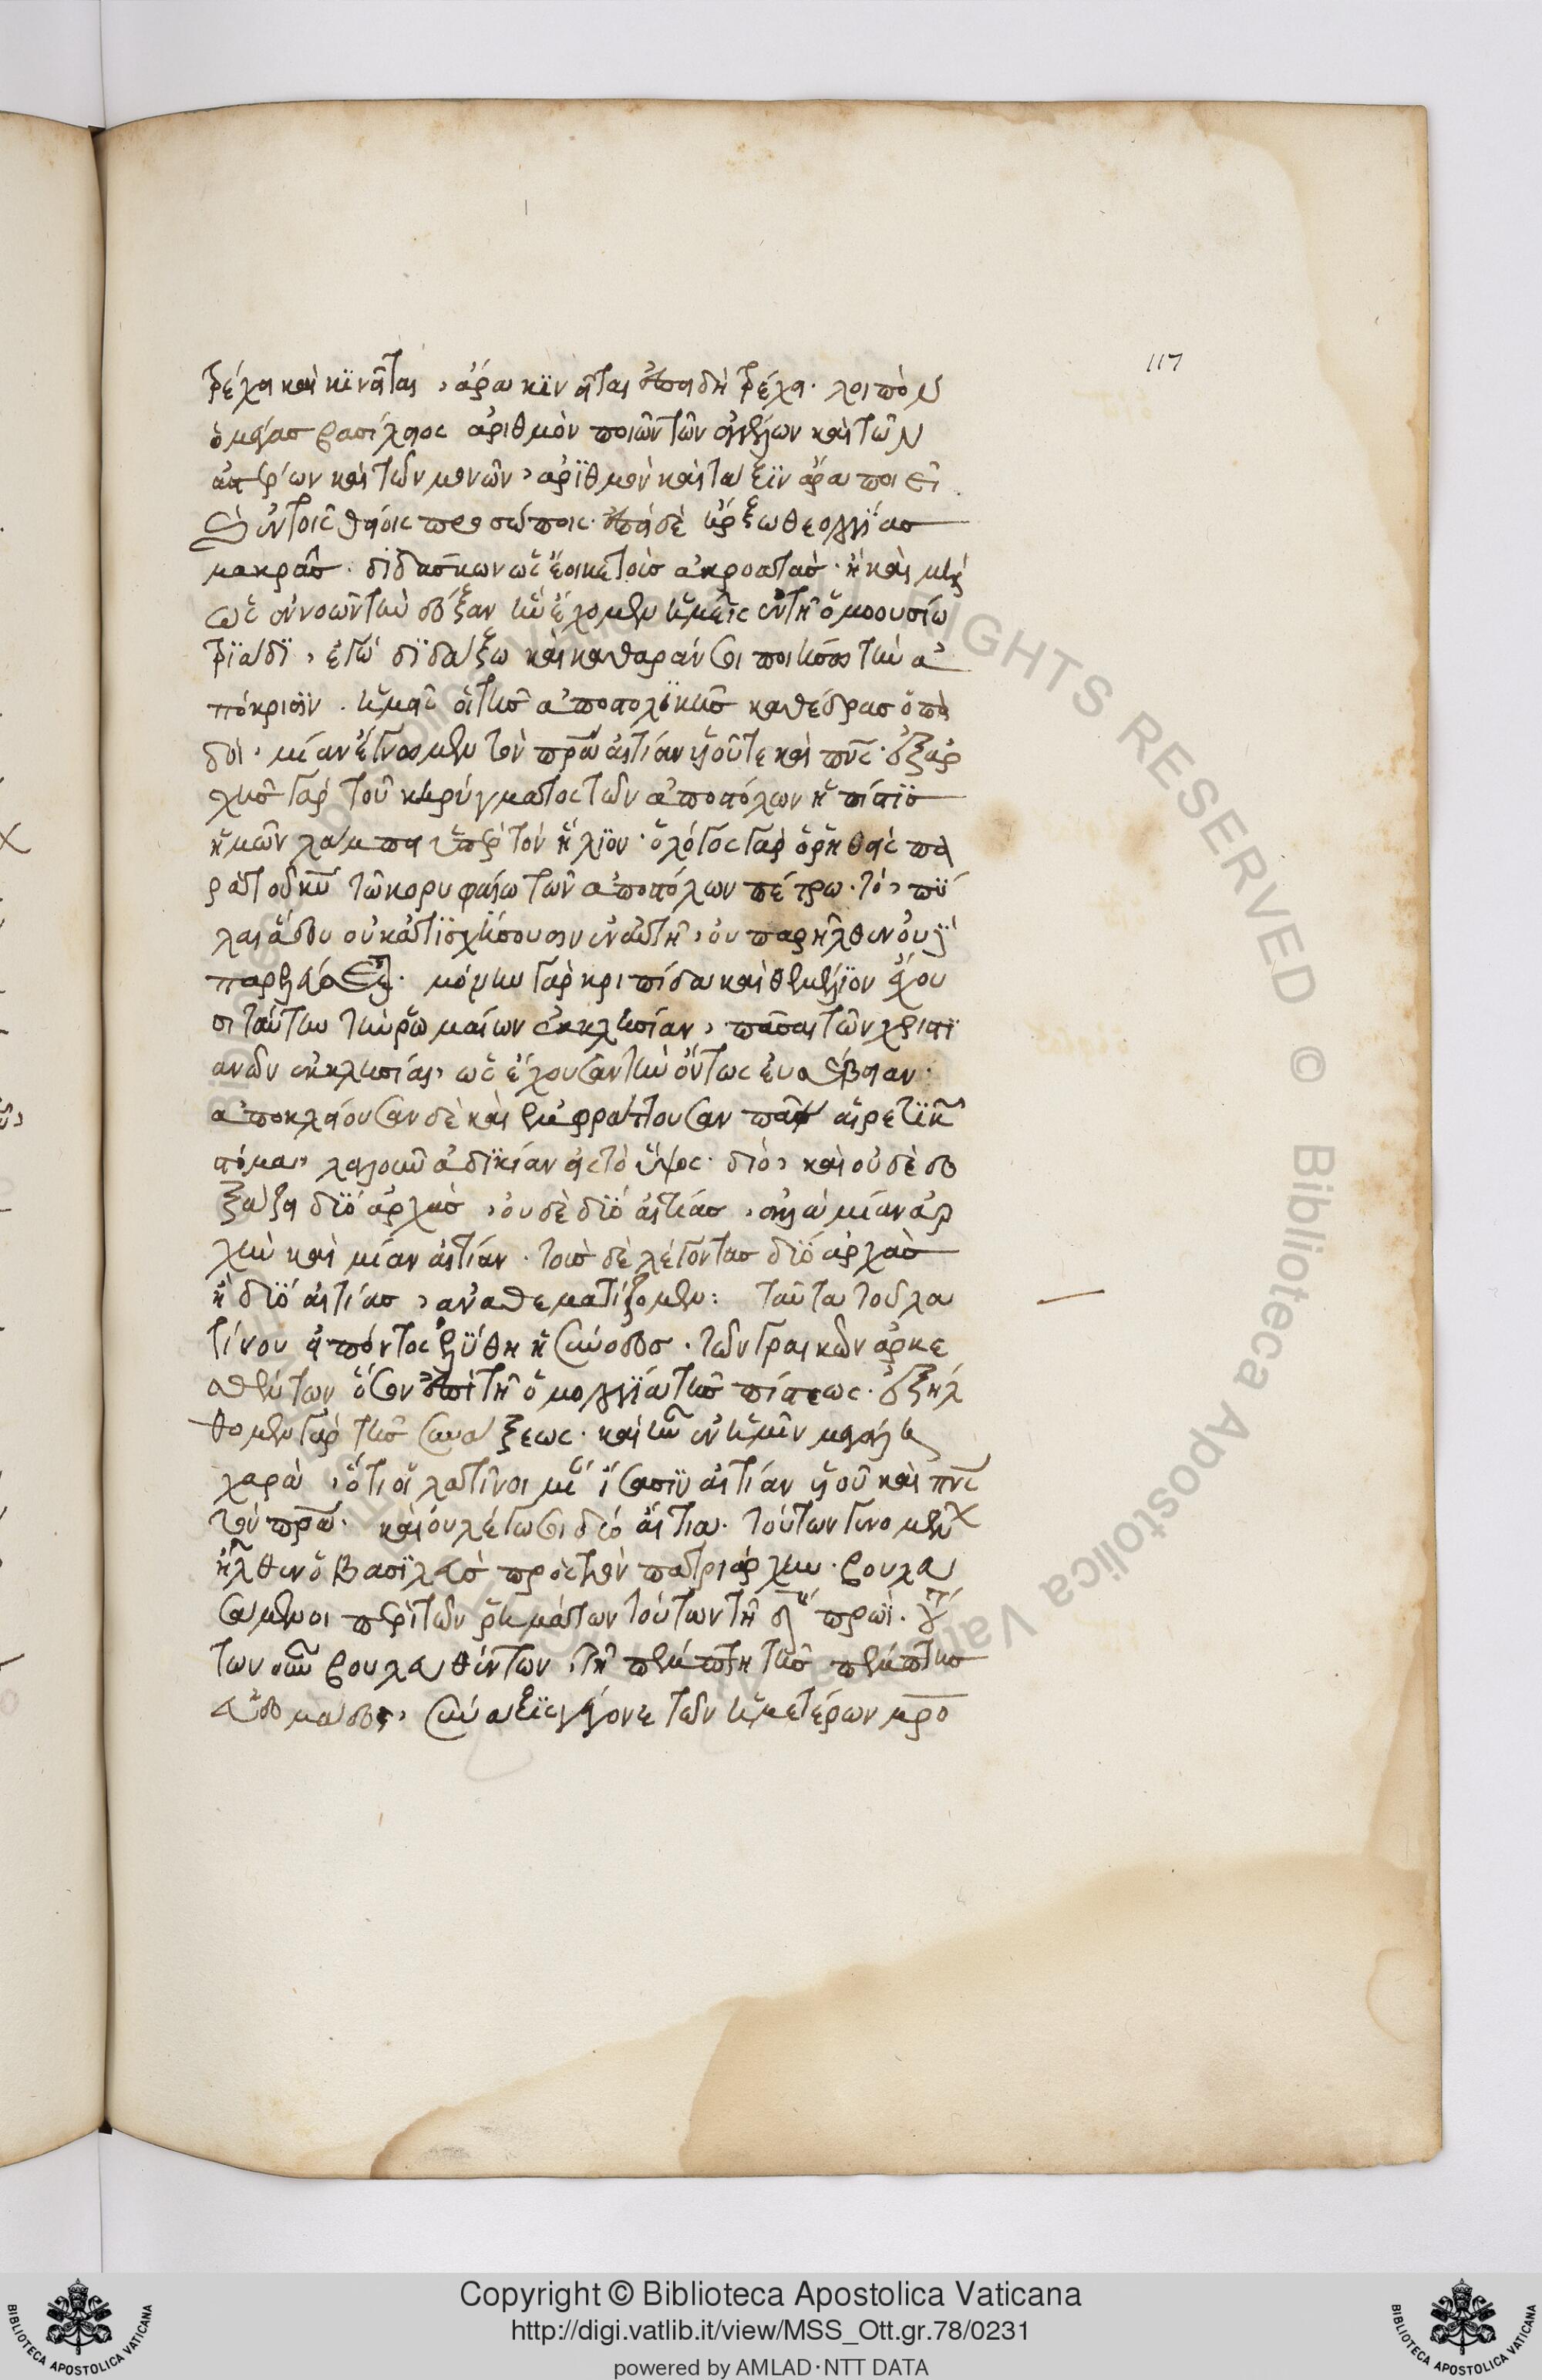 117
τρέχει καὶ κινεῖται, ἄρα κινεῖται ἐπειδὴ τρέχει. λοιπὸν
ὁ μέγας βασίλειος ἀριθμὸν ποιῶν τῶν ἀγγέλων καὶ τῶν
καὶ τῶν μονῶν, ἀριθμὸν καὶ τάξιν ἄρα ποιεῖ
ἐν τοῖς θείοις προσώποις. θεολογίας
μακρᾶς. διδάσκων ὡς ἔοικε τοὺς ἀκροατὰς. ἢ καὶ
δόξαν ἣν ἔχομεν ἡμεῖς ἐν τῇ ὁμοουσίω
τριάδι, ἐγὼ διδάξω καὶ καθαρὰν σοι ποιήσω τὴν ἀ
πόκρισιν. ἡμεῖς οἱ τῆς ἀποστολικῆς καθέδρας ὀπα
δοὶ, μίαν τὸν πρα αἰτίαν υἱοῦ τε καὶ πνς. ἐξ ἀρ
χῆς γὰρ τοῦ κηρύγματος τῶν ἀποστόλων ἡ πίστις
ἡμῶν λάμπει ὑπὲρ τὸν ἥλιον. ὁ λόγος γὰρ ὁ ῥηθεὶς πα
ρὰ τοῦ κυ τῶ κορυφαίω τῶν ἀποστόλων πέτρω. τὸ, πύ
λαι ἅδου οὐ κατισχύσουσιν ἐν αὐτῇ, οὐ παρῆλθεν οὐδὲ
παρελεύσεται. μόνην γὰρ κρηπίδα καὶ θεμέλιον ἔχου
σι ταύτην τὴν ῥωμαίων ἐκκλησίαν, πᾶσαι τῶν χριστι
ανῶν ἐκκλησίαι, ὡς ἔχουσαν τὴν ὄντως εὐσέβειαν.
ἀποκλείουσαν δὲ καὶ ἐμφράττουσαν πᾶν αἱρετικὸν
στόμα, λαλοῦν ἀδικίαν εἰς τὸ ὕψος. διὸ, καὶ οὐδὲ δο
ξάζει δύο ἀρχὰς, οὐδὲ δύο αἰτίας, ἀλλὰ μίαν ἀρ
χὴν καὶ μίαν αἰτίαν. τοὺς δὲ λέγοντας δύο ἀρχὰς
ἢ δύο αἰτίας, ἀναθεματίζομεν: ταῦτα τοῦ λα
τίνου εἰπόντος ἐλύθη ἡ σύνοδος. τῶν γραικῶν ἀρκε
σθέντων ὅσον ἐπὶ τῇ ὁμολογία τῆς πίστεως. ἐξήλ
θομεν γὰρ τῆς συνάξεως. καὶ ἦν ἐν ἡμῖν μεγάλη
χαρὰ, ὅτι οἱ λατίνοι αἰτίαν υἱοῦ καὶ πνς
τὸν πρα. καὶ οὐ λέγωσι δύο αἴτια. τούτων γενομένων
ἦλθεν ὁ βασιλεὺς πρὸς τὸν πατριάρχην. βουλευ
σάμενοι περὶ τῶν ῥημάτων τούτων τῇ πρωΐ.
των οὖν βουλευθέντων, τῇ πέμπτη τῆς πέμπτης
ἑβδομάδος, σύναξις γέγονε τῶν ἡμετέρων μρο